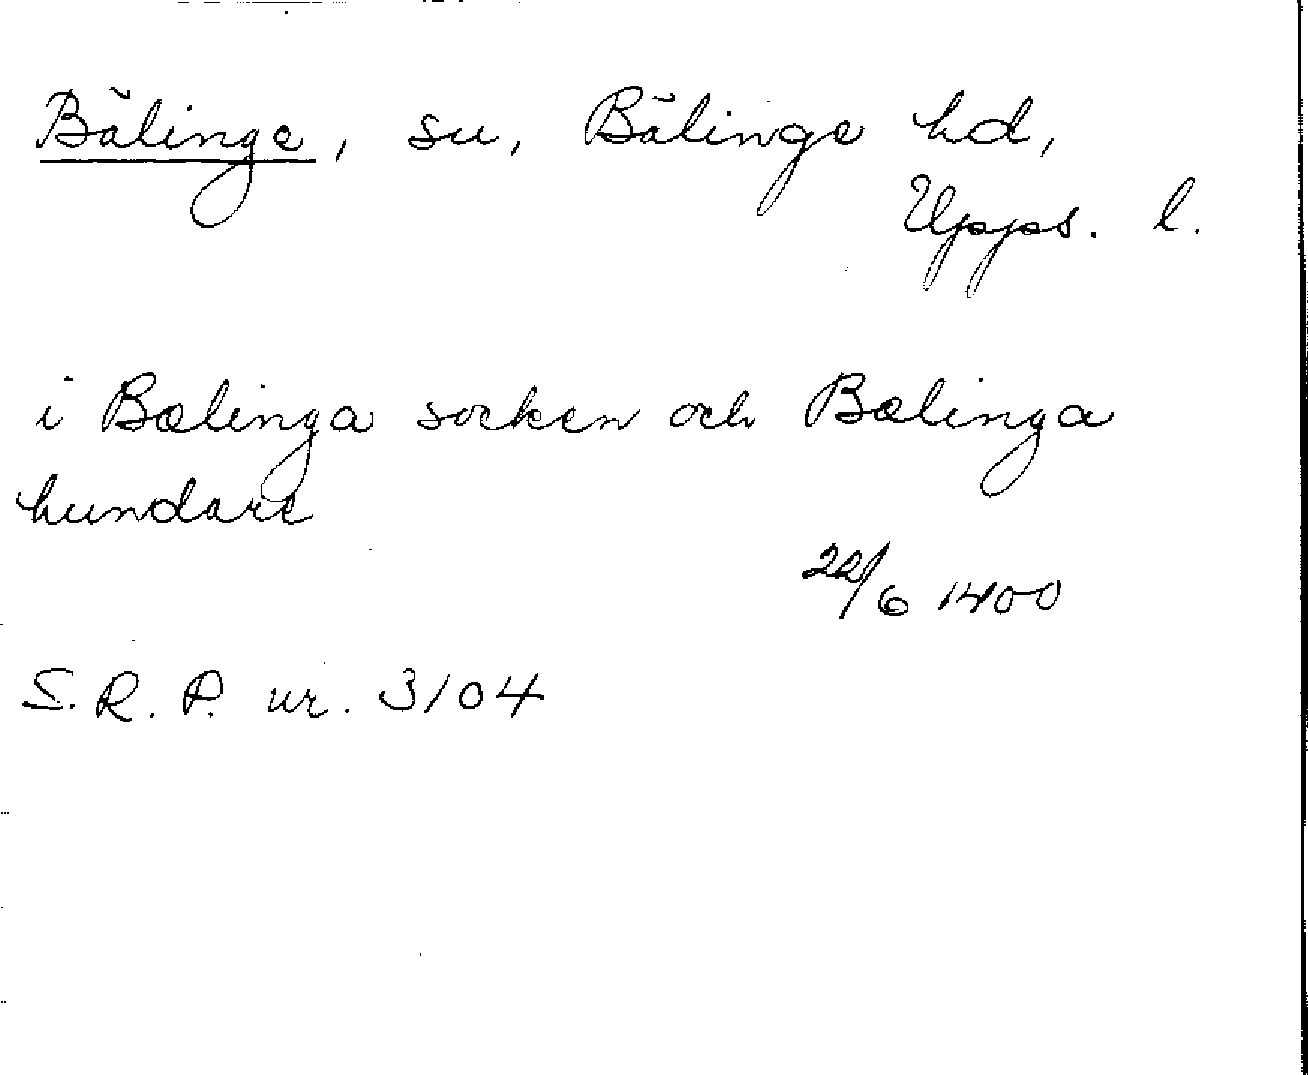 Bälinge, sn, Bälinge hd,
Upps. l.
i Bælinga socken och Bælinga
hundare
22/6 1400
S. R. P. nr. 3104